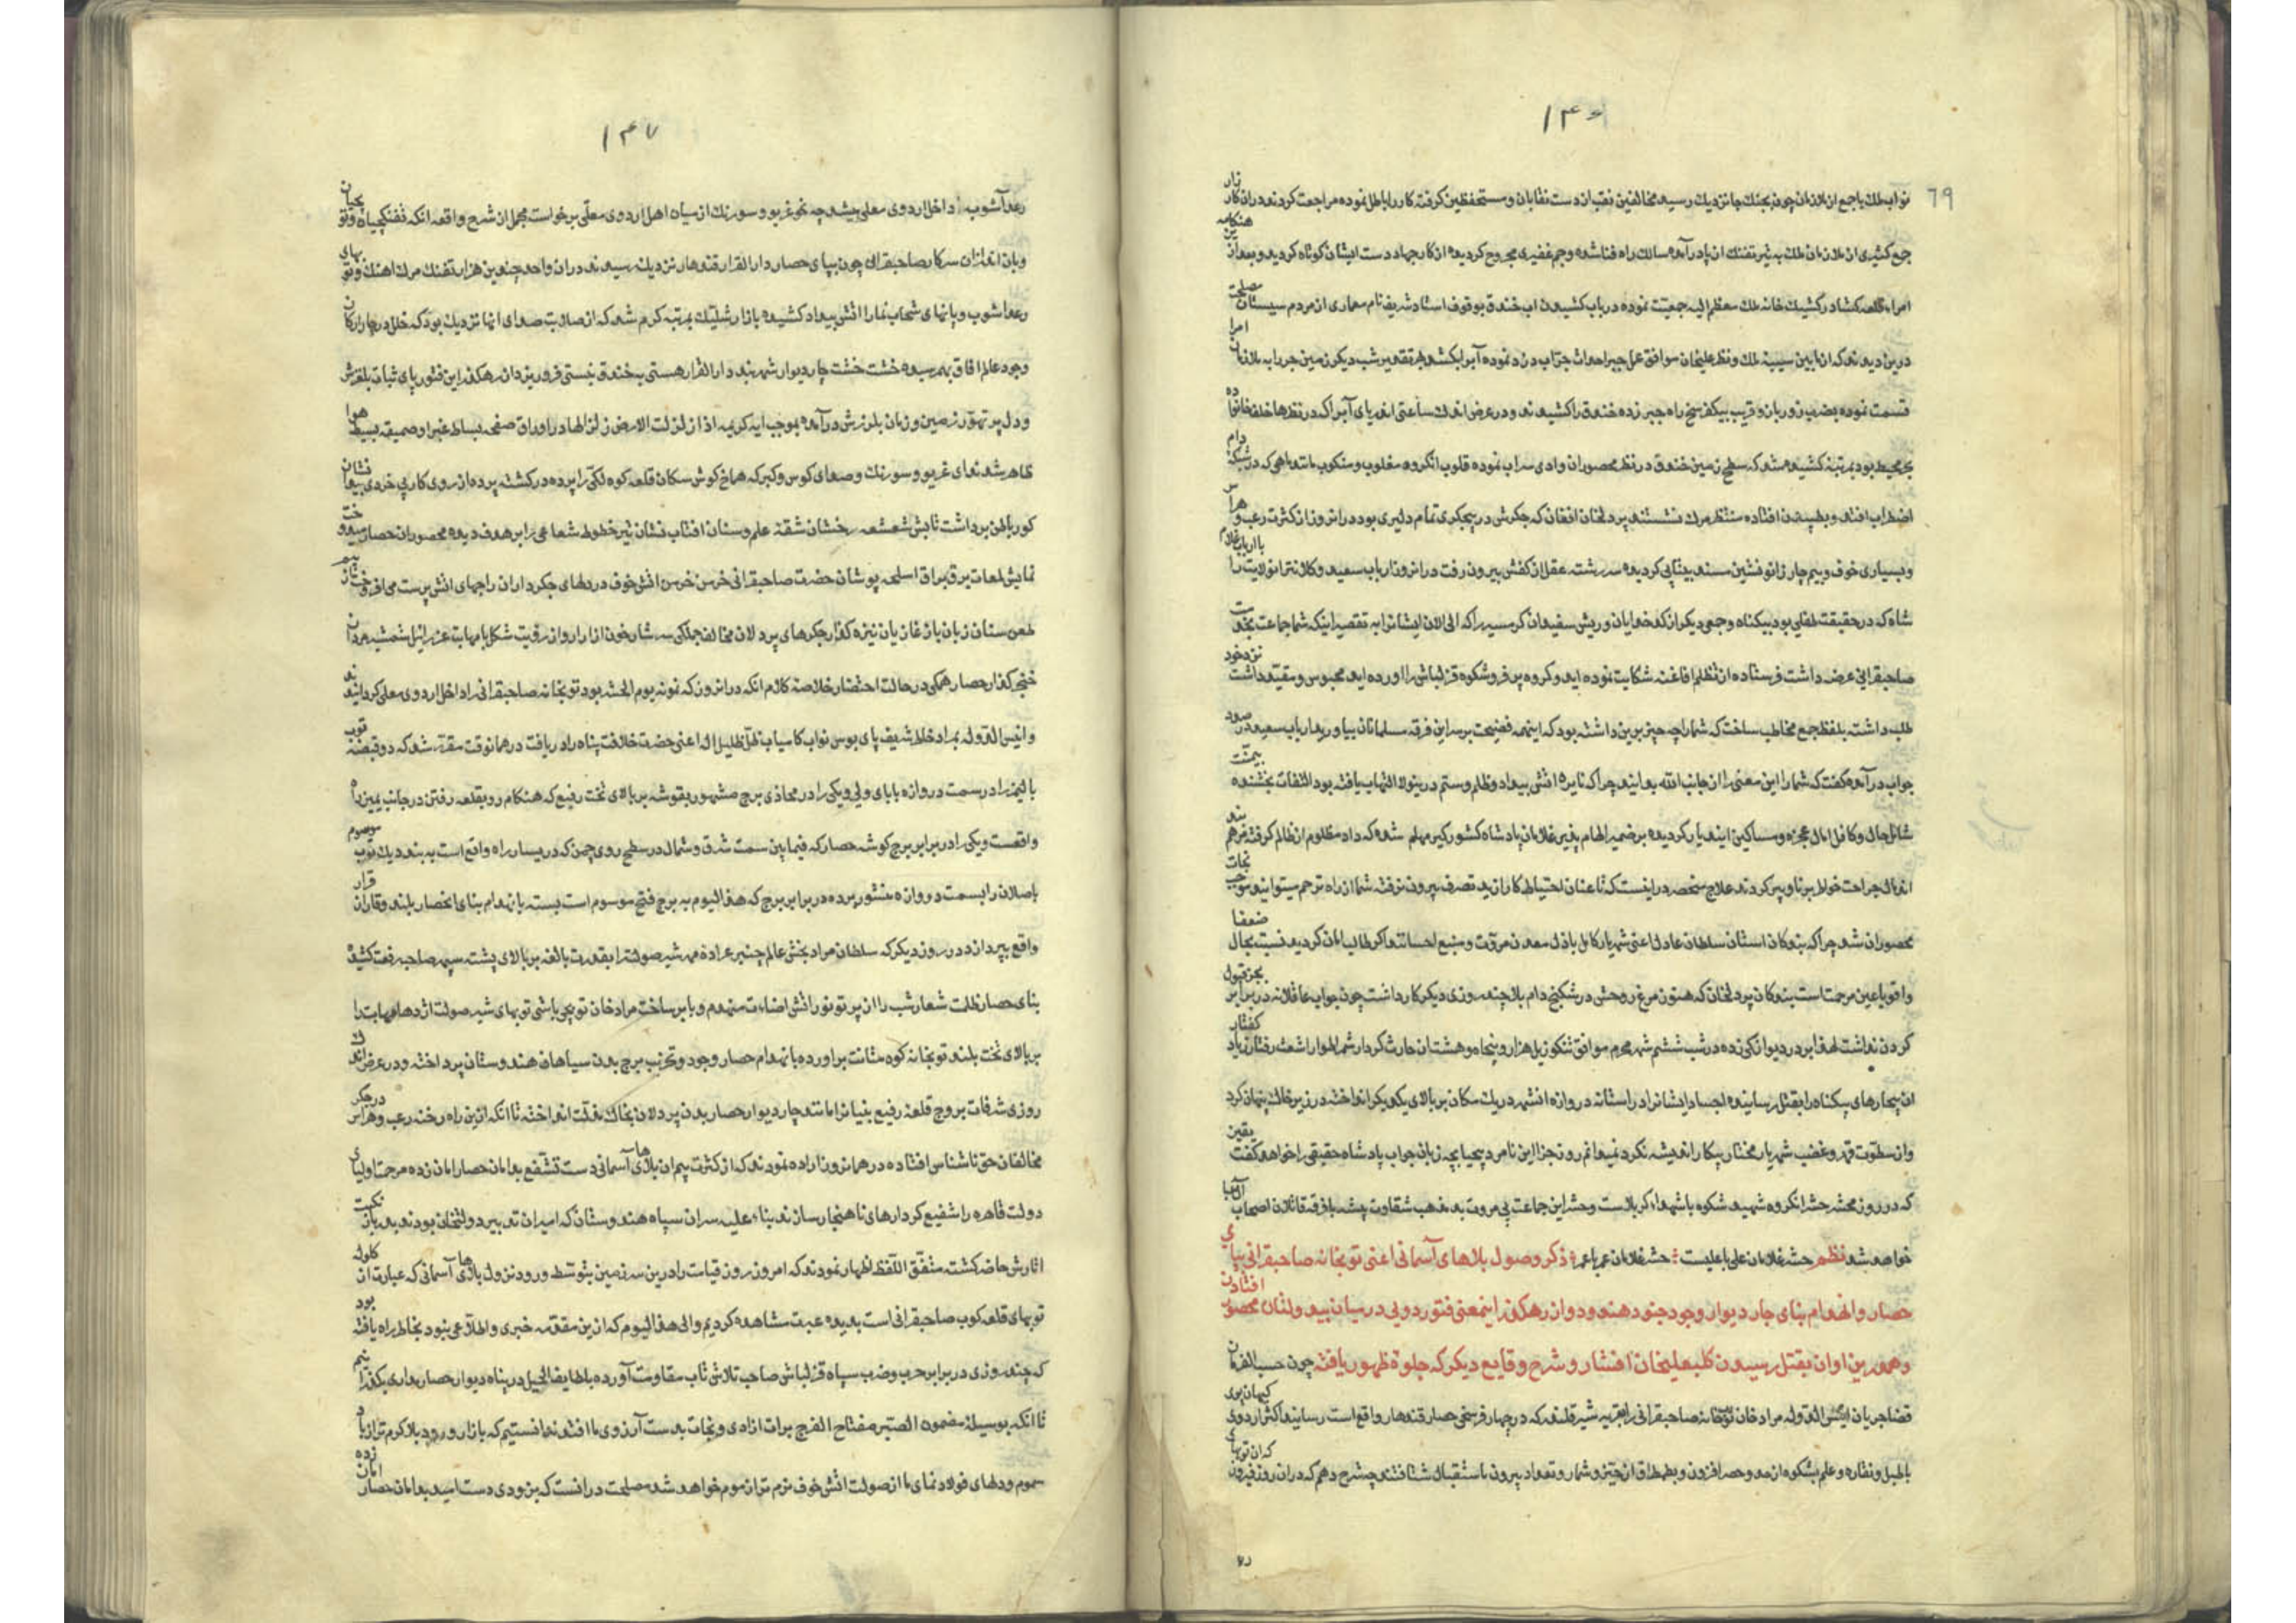 ۱۴۶
٦٩
نواب ملک با جمع از ملازمان چون بجنک جا نزدیک رسیده مخالفین نقب از دست نقابان و مستحفظین گرفته کار را باطل نموده مراجعت کردند در ان کارزار
جمع کثیری از ملازمان ملک به تیر تفنک از پا درآمده سالک راه فنا شده و جم غفیری مجروح کردیده از کار جهاد دست ایشان کوتاه کردید و بعد از این هنکامه
امراء قلعه کشا در کشیک خانه ملک معظم الیه جمعیت نموده در باب کشیدن اب خندق بوقوف استاد شریف نام معماری از مردم سیستان مصلحت
درین دیدند که از مابین سیبه ملک و نظر علیخان موافق عمل جبر احداث جراب در د نموده آبرا بکشند هر تقدیر شب دیکر زمین جر را به ملازمان امرا
قسمت نموده بضرب زور بازو قریب بیکفرسخ راه جبر زده خندق را کشیدند و در عرض اندک ساعتی اند پای آبرا که در نظرها خلف خانواده
بحر محیط بود بمرتبه کشیده شد که سطح زمین خندق در نظر محصوران وادی سراب نموده قلوب انکروه مغلوب و منکوب مانند ماهی که در شبکه دام
اضطراب افتد و بطپیدن افتاده منتظر مرک نشستند پردلخان افغان که جکرش در بیجکری تمام دلیری بود در انروز از کثرت رعب و هراس
و بسیاری خوف و بیم چار زانو نشین مسند بیتابی کردیده سر رشته عقل از کفش بیرون رفت در انروز ارباب سعید و کلانتر انولایت را با ارباب غلام
شاه که در حقیقت طفلی بود بیکناه و جمعی دیکر از کدخدایان و ریش سفیدان کرمسیر را که الی الان ایشانرا به تقصیر اینکه شما جماعت بخدمت
صاحبقرانی عرضه داشت فرستاده از تظلم افاغنه شکایت نموده اید و کروه پر فر و شکوه قزلباش را اورده اید محبوس و مقید داشت نزد خود
طلب داشته بلفظ جمع مخاطب ساخت که شما را چه چیز برین داشته بود که اینهمه فضیحت بر سر این فرقه مسلمانان بیاورید ارباب سعید در صدد
جواب درآمده گفت که شما را این معنی را از جانب الله بدانید چرا که نایره اتش بیداد و ظلم و ستم درینولا التهاب یافته بود التفات بخشنده بیمنت
شامل حال و کافل امال عجزه و مساکین ایندیار کردیده بر ضمیر الهام پذیر غلامان پادشاه کشورکیر ملهم شده که داد مظلوم از ظالم کرفته مرهم بند
اندمال جراحت خواطر برنا و پیر کردند علاج منحصر در اینست که تا عنان احتیاط کار از ید تصرف بیرون نرفته شما از راه ترحم میتوانید موجب نجات
محصوران شد چرا که بندکان استان سلطان عادل اعنی شهریار کامل باذل معدن مروت و منبع احسانند اکر طالب امان کردید نسبت بحال ضعفا
و اقویا عین مرحمت است بندکان پردلخان که هنوز مرغ روحش در شکنج دام بلا چند روزی دیکر کار داشت چون جواب عاقلانه در برابر بجز قبول
کردن نداشت لهذا بر در دیوانکی زده در شب ششم شهر محرم موافق تنکوزئیل هزار و پنجاه و هشت ان حارث کردار شمر اطوار اشعث رفتار زیاد کفتار
ان بیچارهای بیکناه را بقتل رسانیده اجساد ایشانرا در استانه دروازه افشهر در یک مکان بر بالای یکدیکر انداخته در زیر خاک پنهان کرد
و از سطوت قهر و غضب شهریار مختار بیکار اندیشه نکرد نمیدانم روز جزا این نامرد بیحیا بچه زبان جواب پادشاه حقیقی را خواهد کفت یقین
که در روز محشر حشر انکروه شهید شکوه با شهداء کربلاست و حشر این جماعت بی مروت بد مذهب شقاوت پیشه با فرقه قاتلان اصحاب آل عبا
خواهد شد نظم حشر غلامان علی با علیست حشر غلامان عمر با عمر ذکر وصول بلاهای آسمانی اعنی توبخانه صاحبقرانی بپای
حصار و انهدام بنای چار دیوار وجود جنود هندو و از رهکذر اینمعنی فتور دویی در میان بیدولتان محصور افتادن
و همدرین اوان بقتل رسیدن کلبعلیخان افشار و شرح وقایع دیکر که جلوهٔ ظهور یافته چون حسب الفرمان
قضا جریان انیس الدوله مراد خان توپخانه صاحبقرانی را بقریه شیر قلعه که در چهار فرسخی حصار قندهار واقع است رسانید اکثر اردوی کیهان پوی
با طبل و نقاره و علم بشکوه از حد و حصر افزون و بطمطراق از حیز شمار و تعداد بیرون باستقبال شتافتند چشرح دهم که در ان روز فیروز که ان توپهای
رعد
۱۴۷
رعد آشوب داخل اردوی معلی میشد چه نحو غریو و سورنک از سپاه اهل اردوی معلی برخواست مجمل از شرح واقعه انکه تفنکچیان و توپچیان
و بان اندازان سرکار صاحبقران چون بپای حصار دار القرار قندهار نزدیک رسیدند در ان واحد چندین هزار تفنک مرک اهنک و توپهای
رعد اشوب و بانهای شهاب نما را اتش بیداد کشیده بازار شلیک بمرتبه کرم شد که از صلابت صدای انها نزدیک بود که خلل در چهار ارکان
وجود عالم افاق بهم رسیده خشت خشت چار دیوار شهربند دار القرار هستی بخندق نیستی فرو ریزد از رهکذر این فتور پای ثبات بلغزش
و دل پر تهور زمین و زمان بلرزش درآمده بموجب ایه کریمه اذا زلزلت الارض زلزالها در اوراق صفحه بساط غبرا و ضمیمه بسیط هوا
ظاهر شد ندای غریو و سورنک و صدای کوس و کبرکه صماخ کوش سکان قلعه کوه لکی را پرده در کشته پرده از روی کار پی خردی بیدانشان
کور باطن برداشت تابش شعشعه رخشان شقه علم و سنان افتاب نشان تیر خطوط شعاعی را بر هدف دیده محصوران حصار میدوخت
نمایش لمعات برق یراق اسلحه پوشان حضرت صاحبقرانی خرمن خرمن اتش خوف در دلهای جکرداران راجهای اتش پرست می افروخت
طعن سنان زبان باز غازیان نیزه کذار جکرهای پردلان مخالف جملکی سرشار خون ازار و از رؤیت شکل با مهابت عزرائیل شمشیر مردان
خنجر کذار حصار همکی در حالت احتضار خلاصه کلام انکه در انروز که نمونه یوم الحشر بود توبخانه صاحبقرانی را داخل اردوی معلی کردانیدند
و انیس الدوله مراد خلط شریف پای بوس نواب کامیاب ظل ظلیل اله اعنی حضرت خلافت پناه را دریافت در همانوقت مقرر شد که دو قبضه توپ
بالیمز را در سمت دروازه بابای ولی و یکی را در محاذی برج مشهور بقوشه بر بالای تخت رفیع که هنکام رو بقلعه رفتن در جانب یمین راه
واقعست و یکی را در برابر برج کوشه حصار که فیمابین سمت شرق و شمال در سطح روی چمن که در یسار راه واقع است به بند دیک توپ موسوم
باصلان را بسمت دروازه منشور برده در برابر برج که هذا الیوم به برج فتح موسوم است بسته بانهدام بنای انحصار بلند وقار ان قرار
واقع بپردازد در روز دیکر که سلطان مراد بخش عالم چنبر عراده مهر شیر صولت را بقدرت بالغه بر بالای پشته سپهر صاحب رفعت کشیده
بنای حصار ظلمت شعار شب را از پرتو نور اتش اضاءت منهدم و بایر ساخت مراد خان توپچی باشی توپهای شیر صولت اژدها مهابت را
بر بالای تخت بلند توبخانه کوه متانت براورده بانهدام حصار وجود و تخریب برج بدن سپاهان هندوستان پرداخته و در عرض اندک
روزی شرفات بروج قلعه رفیع بنیانرا مانند چار دیوار حصار بدن پردلان بخاک مذلت انداخته تا انکه ازین راه رخنه رعب و هراس در جکر
مخالفان حق ناشناس افتاده در همانروز اراده نمودند که از کثرت بیم ان بلاهای آسمانی دست تشفع بدامان حصار امان زده مرحمت اولیای
دولت قاهره را شفیع کردارهای ناهنجار سازند بناء علیه سران سپاه هندوستان که امیران تدبیر دولتخان بودند بدربان نکبت
اثارش حاضر کشته متفق اللفظ اظهار نمودند که امروز روز قیامت را درین سرزمین بتوسط ورود نزول بلاهای آسمانی که عبارت از کلوله
توپهای قلعه کوب صاحبقرانی است بدیده عبرت مشاهده کردیم و الی هذا الیوم که ازین مقدمه خبری و اطلاعی نبود بخاطر راه یافته بود
که چند روزی در برابر حرب و ضرب سپاه قزلباش صاحب تلاش تاب مقاومت آورده بلطایف الحیل در پناه دیوار حصار داری بکذرانیم
تا انکه بوسیله مضمون الصبر مفتاح الفرج برات ازادی و نجات بدست آرزوی ما افتد ندانستیم که بازار ورود بلا کرم تر از باد
سموم و دلهای فولاد نمای ما از صولت اتش خوف نرم تر از موم خواهد شد مصلحت در انست که بزودی دست امید بدامان حصار امان زده